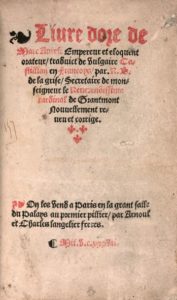 Livre dore de
Marc Aurele Empereur et eloquent
orateur/ traduict de Vulgaire Ca-
stillan en Francoys/ par. R. B.
de la grise/ Secretaire de mon-
seigneur le Reverendissime
cardinal de Grantmont
Nouvellement re
ueu et corrige.
On les vend a Paris en la grant salle
du Palays au premier pillier/ par Arnoul
et Charles langelier freres.